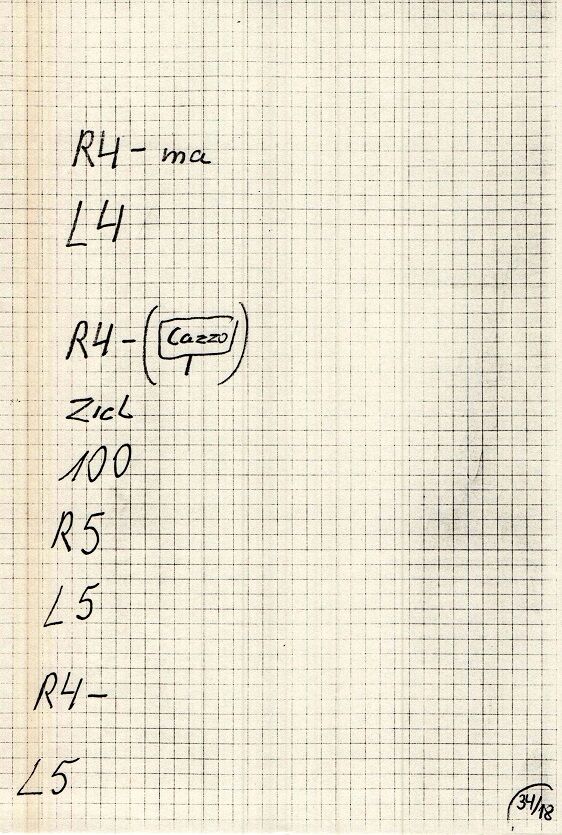 R4- ma
L4
R4-(Cazzo)
Ziel
100
R5
L5
R4-
L5
34/18